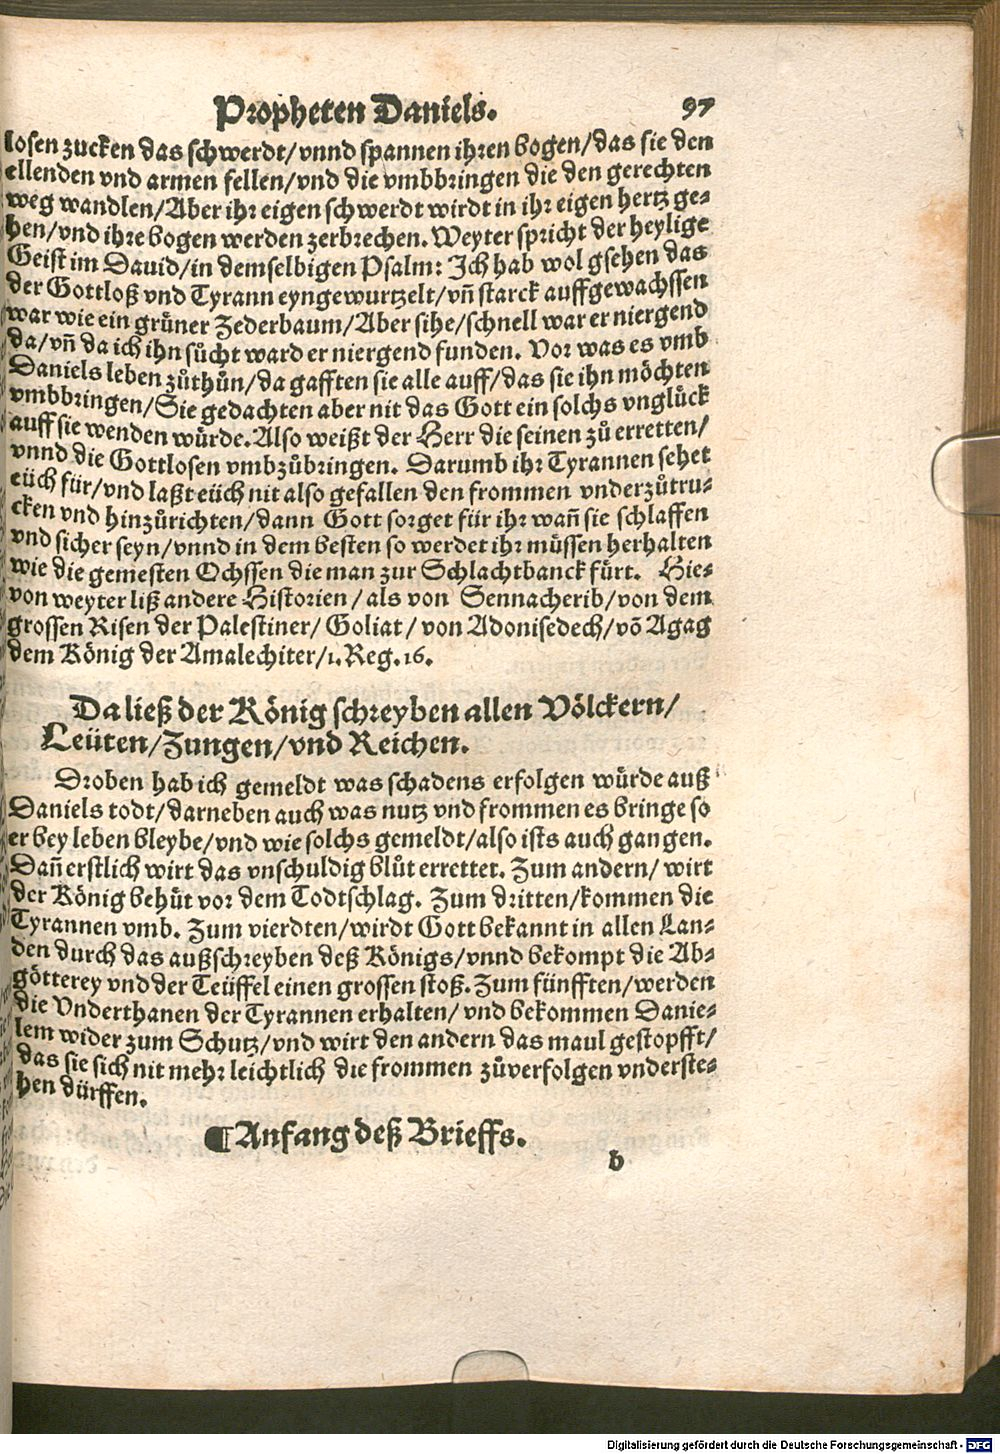 Propheten Daniels. 97
losen zucken das schwerdt/vnnd spannen ihren bogen/das sie den
ellenden vnd armen fellen/vnd die vmbbringen die den gerechten
weg wandlen/Aber ihr eigen schwerdt wirdt in ihr eigen hertz ge-
hen/vnd ihre bogen werden zerbrechen. Weyter spricht der heylige
Geist im Dauid/in demselbigen Psalm: Ich hab wol gsehen das
der Gottloß vnd Tyrann eyngewurtzelt/vñ starck auffgewachssen
war wie ein grüner Zederbaum/Aber sihe/schnell war er niergend
da/vñ da ich ihn sůcht ward er niergend funden. Vor was es vmb
Daniels leben zůthůn/da gafften sie alle auff/das sie ihn möchten
vmbbringen/Sie gedachten aber nit das Gott ein solchs vnglück
auff sie wenden würde. Also weißt der Herr die seinen zů erretten/
vnnd die Gottlosen vmbzůbringen. Darumb ihr Tyrannen sehet
eüch für/vnd laßt eüch nit also gefallen den frommen vnderzůtru-
cken vnd hinzůrichten/dann Gott sorget für ihr wañ sie schlaffen
vnd sicher seyn/vnnd in dem besten so werdet ihr müssen herhalten
wie die gemesten Ochssen die man zur Schlachtbanck fürt. Hie-
von weyter liß andere Historien/als von Sennacherib/von dem
grossen Risen der Palestiner/Goliat/von Adonisedech/võ Agag
dem König der Amalechiter/1. Reg. 16.
Da ließ der König schreyben allen Völckern/
Leüten/Zungen/vnd Reichen.
Droben hab ich gemeldt was schadens erfolgen würde auß
Daniels todt/darneben auch was nutz vnd frommen es bringe so
er bey leben bleybe/vnd wie solchs gemeldt/also ists auch gangen.
Dañ erstlich wirt das vnschuldig blůt errettet. Zum andern/wirt
der König behüt vor dem Todtschlag. Zum dritten/kommen die
Tyrannen vmb. Zum vierdten/wirdt Gott bekannt in allen Lan-
den durch das außschreyben deß Königs/vnnd bekompt die Ab-
götterey vnd der Teüffel einen grossen stoß. Zum fünfften/werden
die Vnderthanen der Tyrannen erhalten/vnd bekommen Danie-
lem wider zum Schutz/vnd wirt den andern das maul gestopfft/
das sie sich nit mehr leichtlich die frommen zůverfolgen vnderste-
hen dürffen.
¶ Anfang deß Brieffs.
b
Digitalisierung gefördert durch die Deutsche Forschungsgemeinschaft - DFG